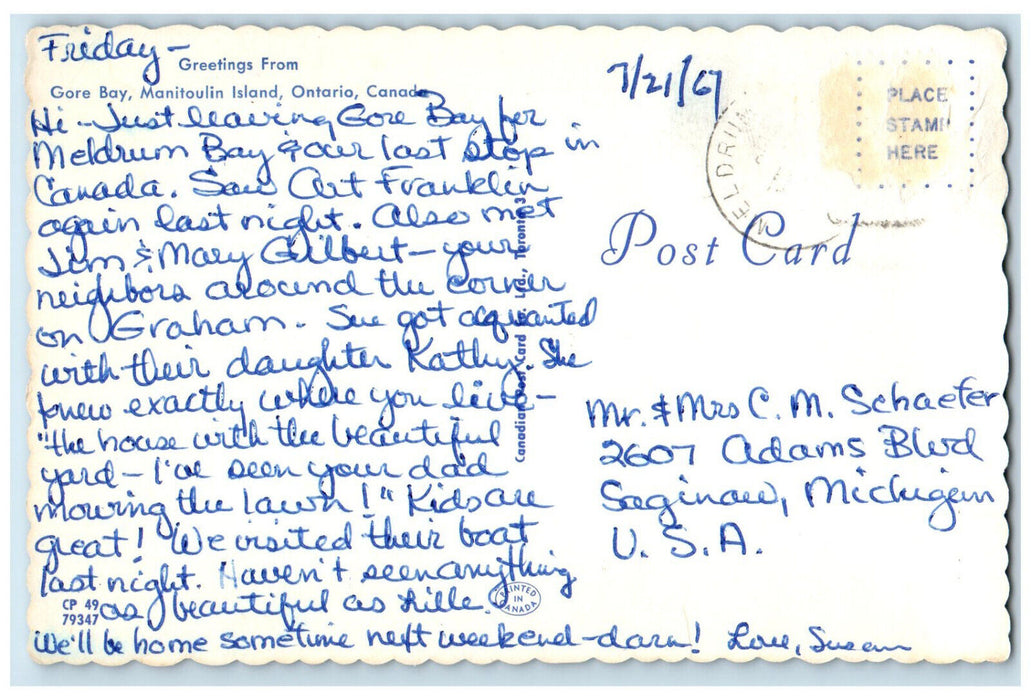 Friday -
Greetings From
Gore Bay, Manitoulin Island, Ontario, Canada
Hi - Just leaving Gore Bay for
Meldrum Bay & our last stop in
Canada. Saw Art Franklin
again last night. Also met
Jim & Mary Gilbert - your
neighbors around the corner
on Graham. Sue got acquanted
with their daughter Kathy. She
knew exactly where you live -
"the house with the beautiful
yard - I've seen your dad
mowing the lawn!" Kids are
great! We visited their boat
last night. Haven't seen anything
as beautiful as Lille.
We'll be home sometime next weekend - darn! Love, Susan
CP 49
79347
PRINTED
IN
CANADA
Canadian Post Card Co. Ltd., Toronto 3
7/21/67
MELDRUM
PLACE
STAMP
HERE
Post Card
Mr. & Mrs C. M. Schaefer
2607 Adams Blvd
Saginaw, Michigan
U. S. A.